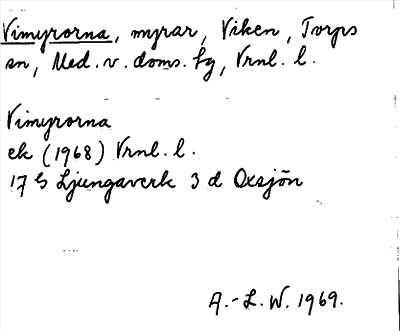 Vimyrorna, myrar, Viken, Torps
sn, Med. v. doms. hg, Vrnl. l.
Vimyrorna
ek (1968) Vrnl. l.
17 G Ljungaverk 3 d Oxsjön
A.-L. W. 1969.